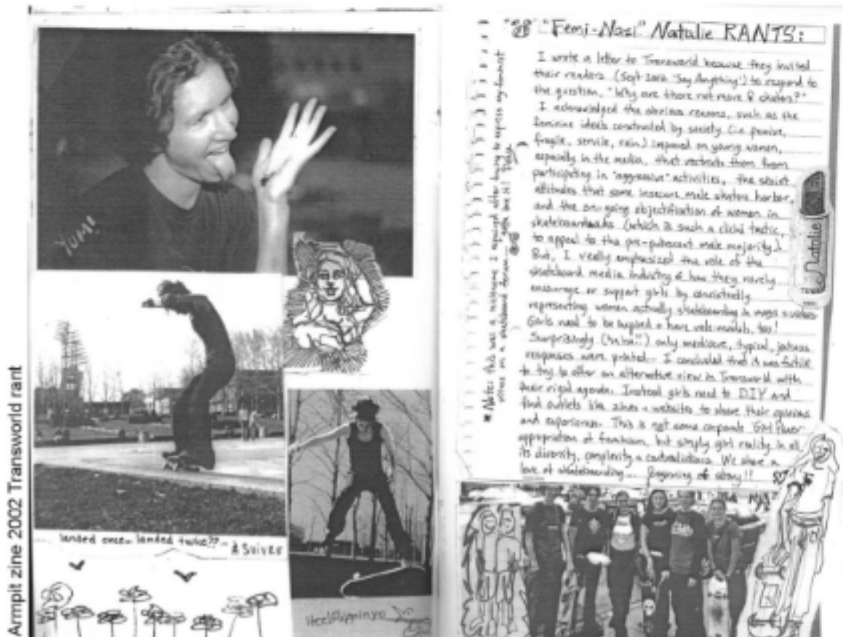 Armpit zine 2002 Transworld rant
YUM!
landed once... landed twice??...
À SUIVRE
Heelflippin yo
"Femi-Nazi" Natalie RANTS:
I wrote a letter to Transworld because they invited
their readers (Sept 2002 'Say Anything') to respond to
the question, "Why are there not more ♀ skaters?"
I acknowledged the obvious reasons, such as the
feminine ideals constructed by society (i.e. passive,
fragile, servile, vain) imposed on young women,
especially in the media, that restricts them from
participating in "aggressive" activities, the sexist
attitudes that some insecure male skaters harbor,
and the on-going objectification of women in
skateboard ads (which is such a cliché tactic,
to appeal to the pre-pubescent male majority).
But, I really emphasized the role of the
skateboard media industry & how they rarely
encourage or support girls by consistently
representing women actually skateboarding in mags & videos
Girls need to be inspired & have role-models, too!
Surprisingly (haha!!) only mediocre, typical, jackass
responses were printed... I concluded that it was futile
to try to offer an alternative view in Transworld with
their rigid agenda. Instead girls need to DIY and
find outlets like zines & websites to share their opinions
and experiences. This is not some corporate 'Girl Power'
appropriation of feminism, but simply girl reality in all
its diversity, complexity & contradictions. We share a
love of skateboarding... Beginning of story!!
* Note: this was a nickname I acquired after trying to express my feminist
views on a skateboard forum...
Natalie